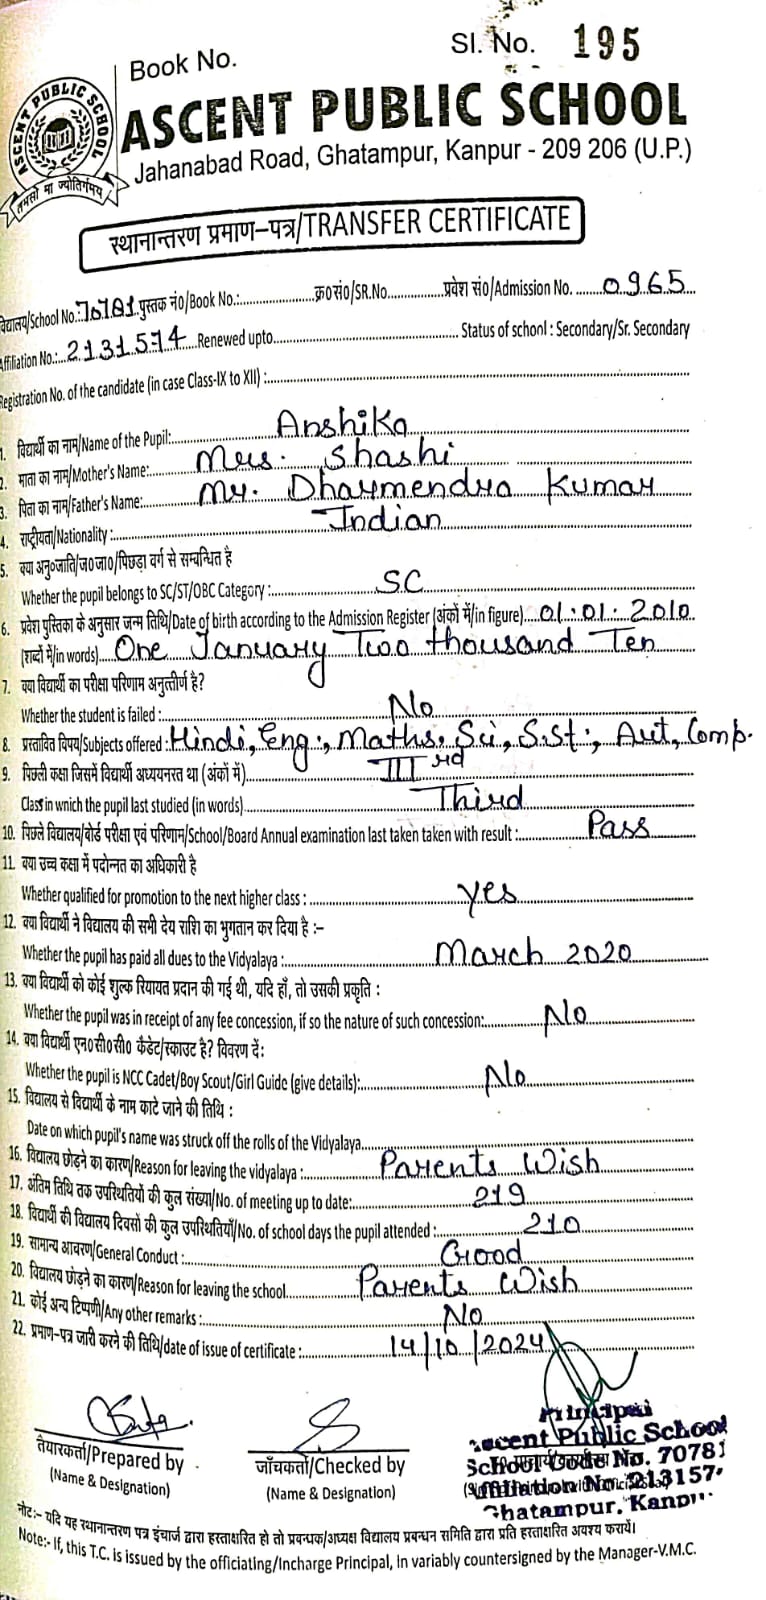 Book No.
Sl. No. 195
ASCENT PUBLIC SCHOOL
तमसो मा ज्योतिर्गमय
ASCENT PUBLIC SCHOOL
Jahanabad Road, Ghatampur, Kanpur - 209 206 (U.P.)
स्थानान्तरण प्रमाण-पत्र/TRANSFER CERTIFICATE
विद्यालय/School No.: 70781 पुस्तक नं०/Book No.:.......... क्र०सं०/SR.No.......... प्रवेश सं०/Admission No. ...0965
Affiliation No.:...2131574 Renewed upto.......... Status of school : Secondary/Sr. Secondary
Registration No. of the candidate (in case Class-IX to XII) :..........
1. विद्यार्थी का नाम/Name of the Pupil:.......... Anshika
2. माता का नाम/Mother's Name:.......... Mrs. Shashi
3. पिता का नाम/Father's Name:.......... Mr. Dharmendra Kumar
4. राष्ट्रीयता/Nationality :.......... Indian
5. क्या अनु०जाति/ज०जा०/पिछड़ा वर्ग से सम्बन्धित है
Whether the pupil belongs to SC/ST/OBC Category :.......... SC
6. प्रवेश पुस्तिका के अनुसार जन्म तिथि/Date of birth according to the Admission Register (अंकों में/in figure)....01.01.2010
(शब्दों में/in words)....One January Two thousand Ten
7. क्या विद्यार्थी का परीक्षा परिणाम अनुत्तीर्ण है?
Whether the student is failed :.......... No
8. प्रस्तावित विषय/Subjects offered : Hindi, Eng., Maths, Sci, S.St., Art, Comp.
9. पिछली कक्षा जिसमें विद्यार्थी अध्ययनरत था (अंकों में).......... III rd
Class in wnich the pupil last studied (in words).......... Third
10. पिछले विद्यालय/बोर्ड परीक्षा एवं परिणाम/School/Board Annual examination last taken taken with result :.......... Pass
11. क्या उच्च कक्षा में पदोन्नत का अधिकारी है
Whether qualified for promotion to the next higher class :.......... yes
12. क्या विद्यार्थी ने विद्यालय की सभी देय राशि का भुगतान कर दिया है :-
Whether the pupil has paid all dues to the Vidyalaya :.......... March 2020
13. क्या विद्यार्थी को कोई शुल्क रियायत प्रदान की गई थी, यदि हाँ, तो उसकी प्रकृति :
Whether the pupil was in receipt of any fee concession, if so the nature of such concession:.......... No
14. क्या विद्यार्थी एन०सी०सी० कैडेट/स्काउट है? विवरण दें:
Whether the pupil is NCC Cadet/Boy Scout/Girl Guide (give details):.......... No
15. विद्यालय से विद्यार्थी के नाम काटे जाने की तिथि :
Date on which pupil's name was struck off the rolls of the Vidyalaya..........
16. विद्यालय छोड़ने का कारण/Reason for leaving the vidyalaya :.......... Parents Wish
17. अंतिम तिथि तक उपस्थितियों की कुल संख्या/No. of meeting up to date:.......... 219
18. विद्यार्थी की विद्यालय दिवसों की कुल उपस्थितियाँ/No. of school days the pupil attended :.......... 210
19. सामान्य आचरण/General Conduct :.......... Good
20. विद्यालय छोड़ने का कारण/Reason for leaving the school.......... Parents Wish
21. कोई अन्य टिप्पणी/Any other remarks :.......... No
22. प्रमाण-पत्र जारी करने की तिथि/date of issue of certificate :.......... 14/10/2024
तैयारकर्ता/Prepared by
(Name & Designation)
जाँचकर्ता/Checked by
(Name & Designation)
Principal
Ascent Public School
School Code No. 70781
Affiliation No. 213157
Ghatampur, Kanpur
नोट:- यदि यह स्थानान्तरण पत्र इंचार्ज द्वारा हस्ताक्षरित हो तो प्रबन्धक/अध्यक्ष विद्यालय प्रबन्धन समिति द्वारा प्रति हस्ताक्षरित अवश्य करायें।
Note:- If, this T.C. is issued by the officiating/Incharge Principal, In variably countersigned by the Manager-V.M.C.